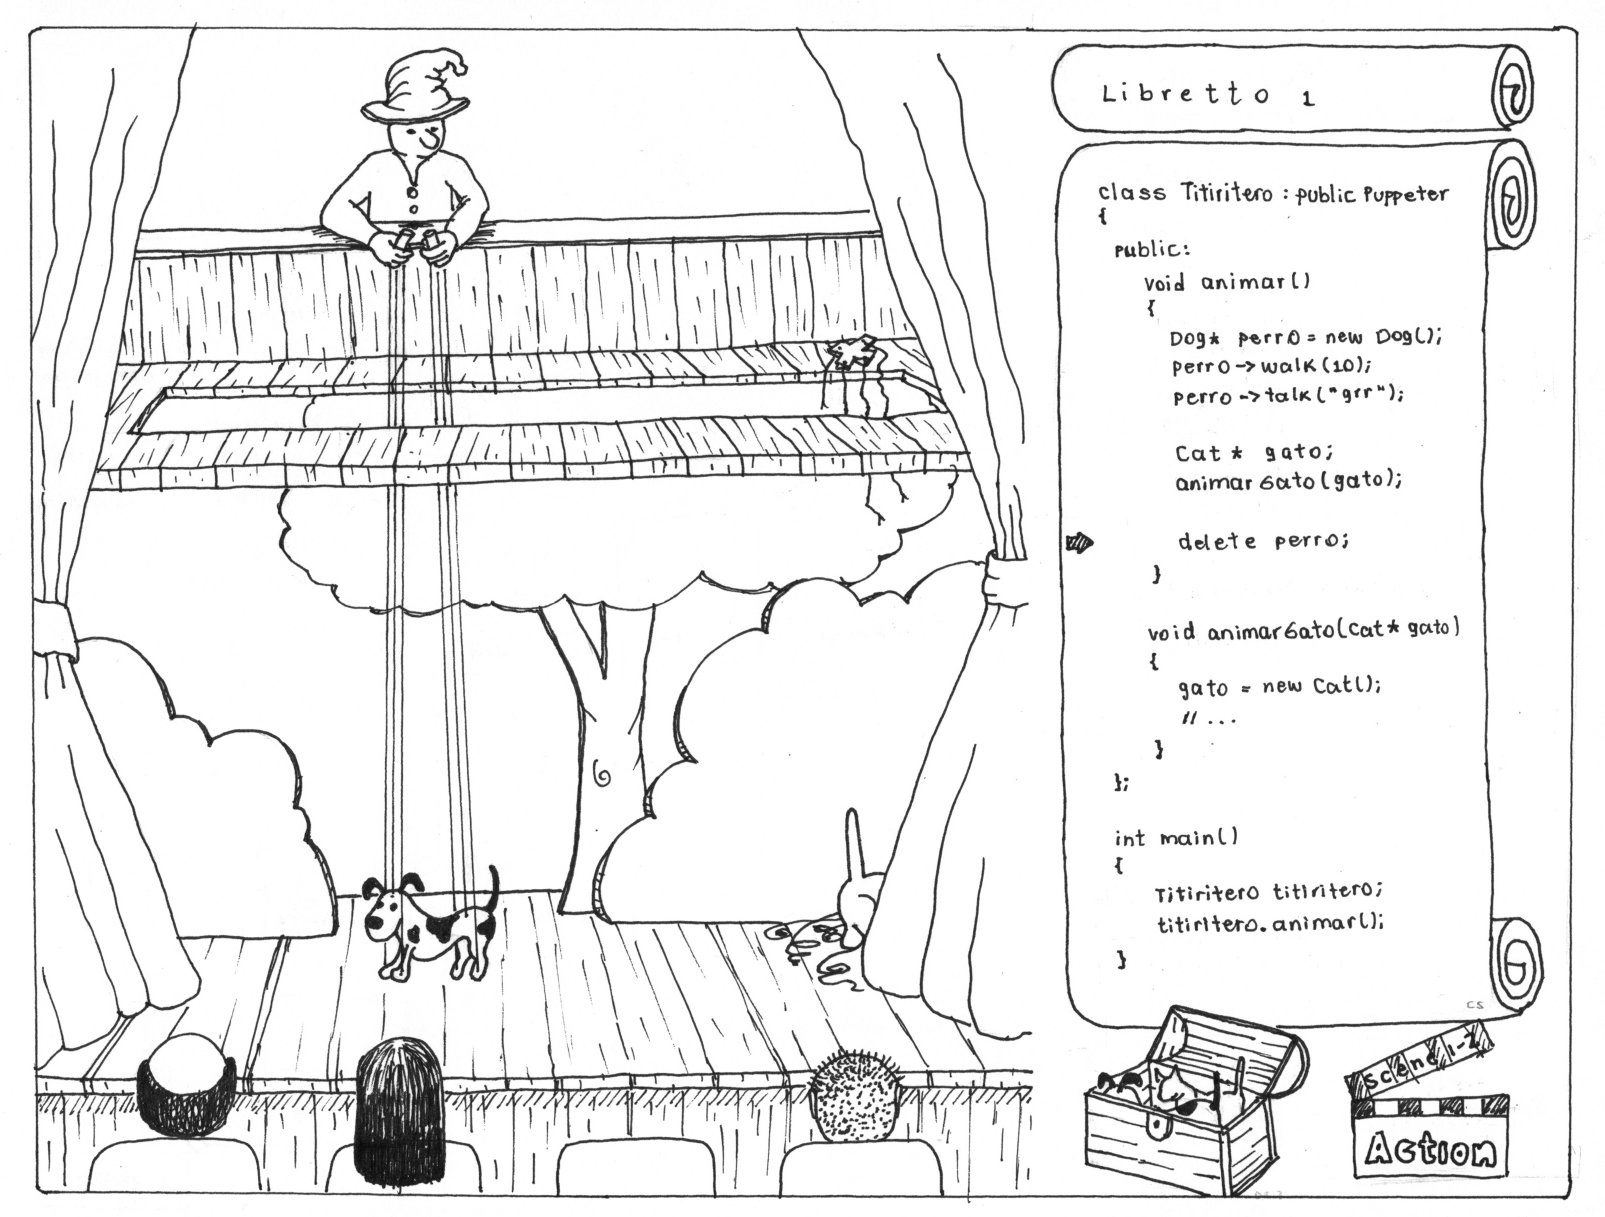 Libretto 1
class Titiritero : public Puppeter
{
public:
void animar()
{
Dog* perro = new Dog();
perro->walk(10);
perro->talk("grr");
Cat * gato;
animarGato(gato);
delete perro;
}
void animarGato(Cat* gato)
{
gato = new Cat();
// ...
}
};
int main()
{
Titiritero titiritero;
titiritero.animar();
}
CS
Scene 1-2
Action